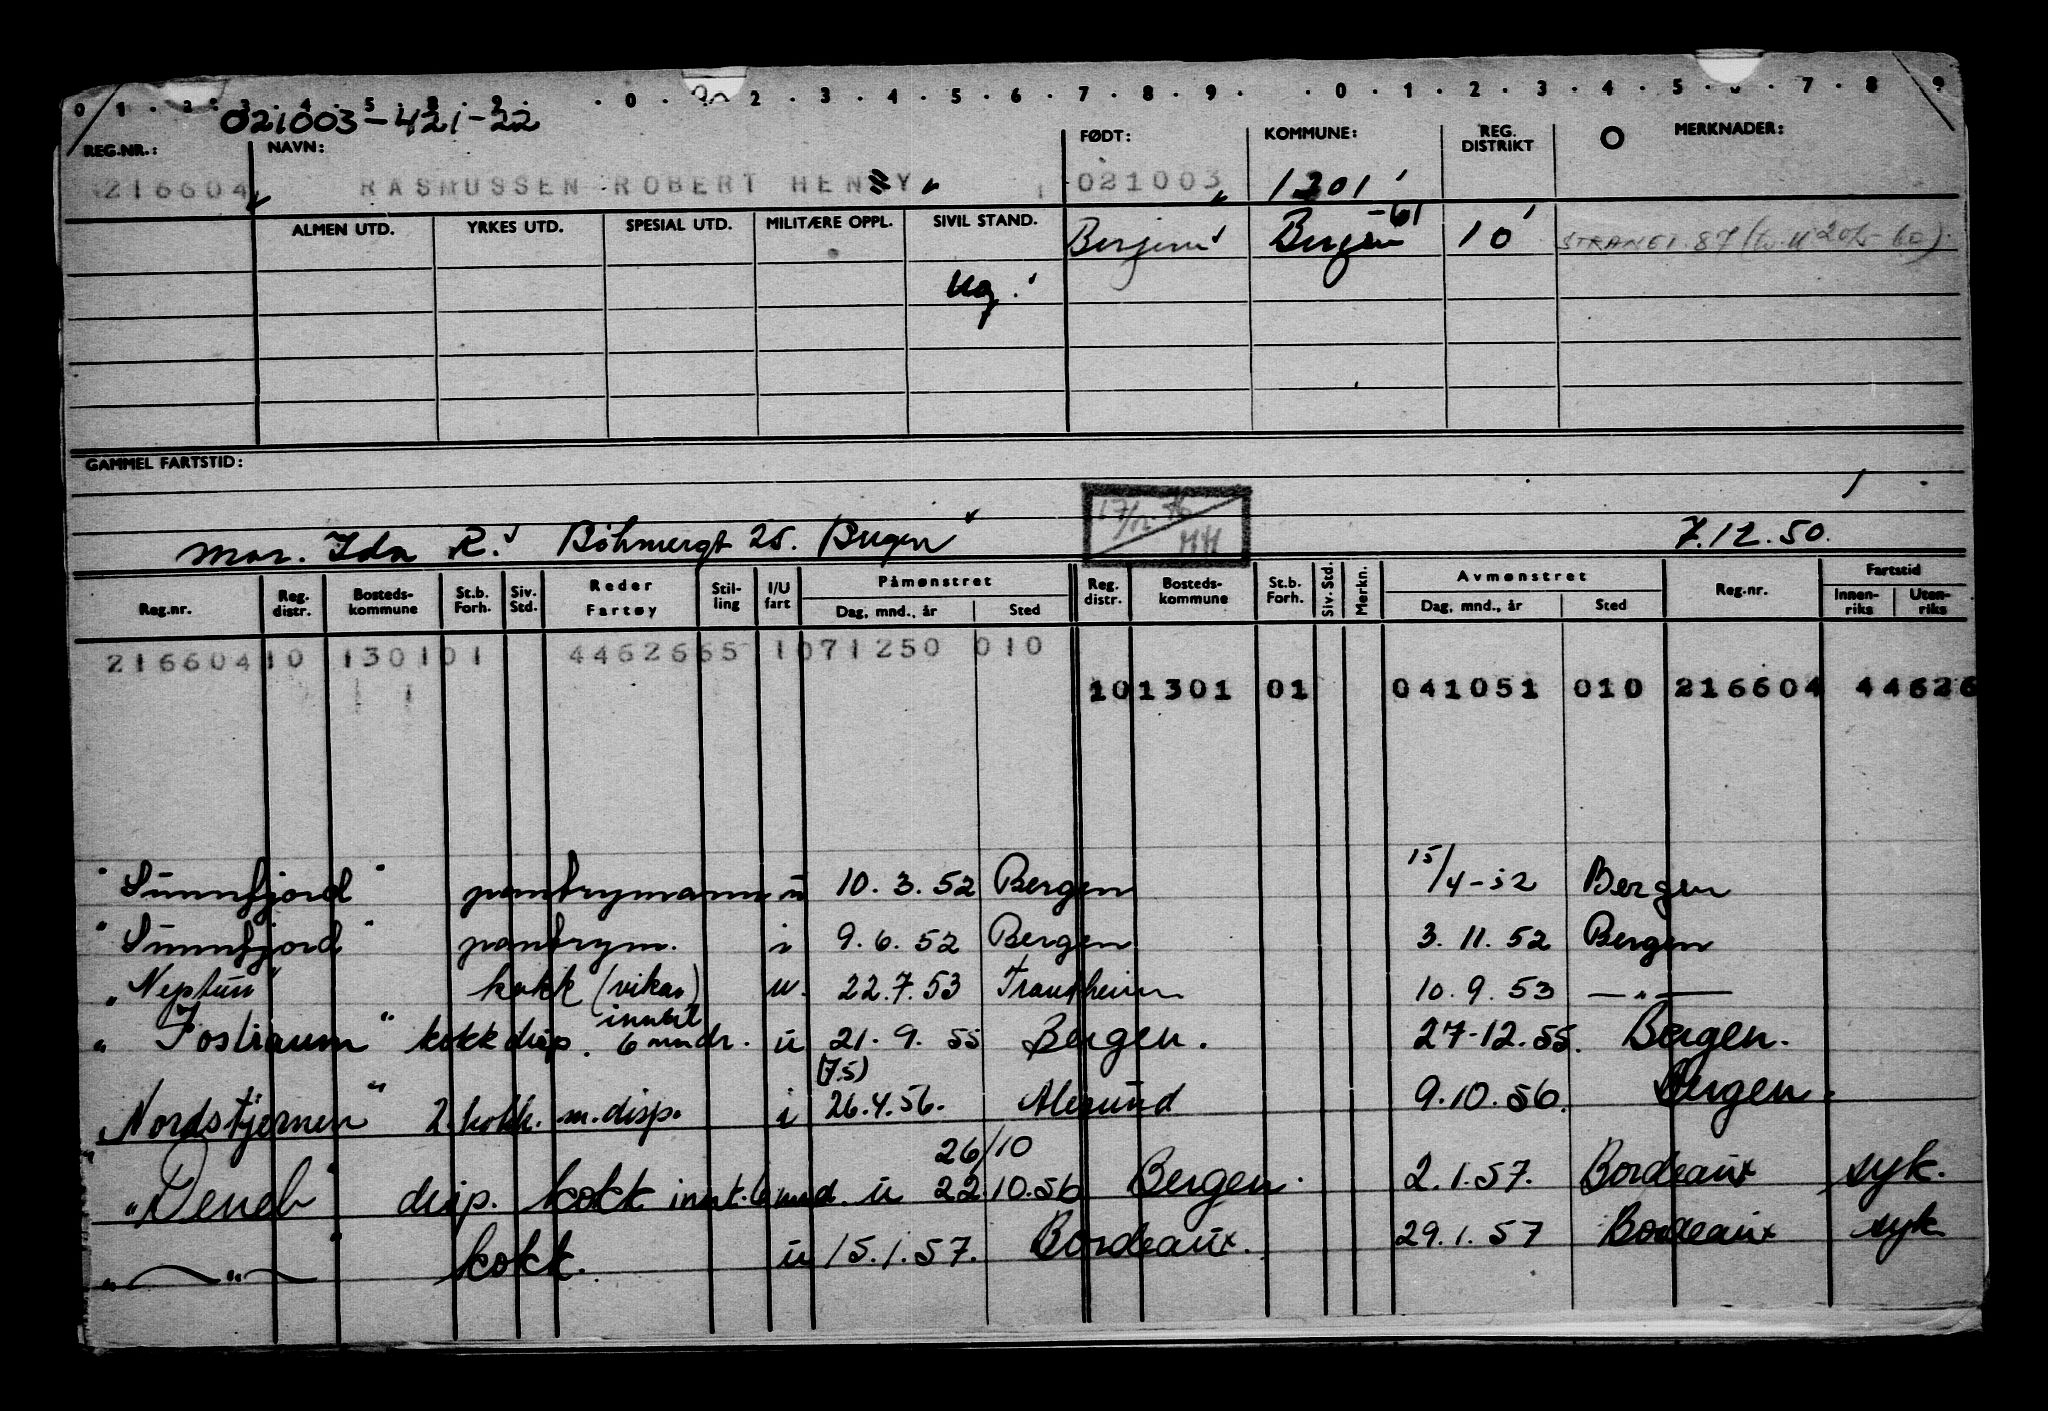 0 1 . 2 . 3 . 4 . 5 . 8 . 9 . . 0 . . 2 . 3 . 4 . 5 . 6 . 7 . 8 . 9 . . 0 . 1 . 2 . 3 . 4 . 5 . . 7 . 8 . 9
021003-421-22
REG.NR.: NAVN: FØDT: KOMMUNE: REG. DISTRIKT O MERKNADER:
216604 RASMUSSEN ROBERT HENRY 021003 1301
ALMEN UTD. YRKES UTD. SPESIAL UTD. MILITÆRE OPPL. SIVIL STAND. Bergen Bergen -61 10 STRANGT. 87
Ug.
GAMMEL FARTSTID:
17/12 76 MH
Mor. Ida R. Bøhmergt 25. Bergen 7.12.50.
Reg.nr. Reg. distr. Bosteds-kommune St.b. Forh. Siv. Std. Reder Fartøy Stil-ling I/U fart Påmønstret Dag, mnd., år Sted Reg. distr. Bosteds-kommune St.b. Forh. Siv. Std. Merkn. Avmønstret Dag, mnd., år Sted Reg.nr. Fartstid Innen-riks Uten-riks
216604 10 1301 01 4462665 1 071250 010
10 1301 01 041051 010 216604 44626
"Sunnfjord" pantrymann u 10.3.52 Bergen 15/4-52 Bergen
"Sunnfjord" pantrym. i 9.6.52 Bergen 3.11.52 Bergen
"Neptun" kokk (vikar) u. 22.7.53 Trondheim 10.9.53 —"—
"Fostraum" kokk disp. innbt 6 mndr. u 21.9.55 Bergen. 27-12.55. Bergen.
"Nordstjernen" 2. kokk. m. disp. i (7.5) 26.4.56. Alesund 9.10.56. Bergen.
"Deneb" disp. kokk innt. 6 mnd. u 26/10 22.10.56 Bergen. 2.1.57. Bordeaux syk.
"—"— kokk. u 15.1.57. Bordeaux. 29.1.57 Bordeaux syk